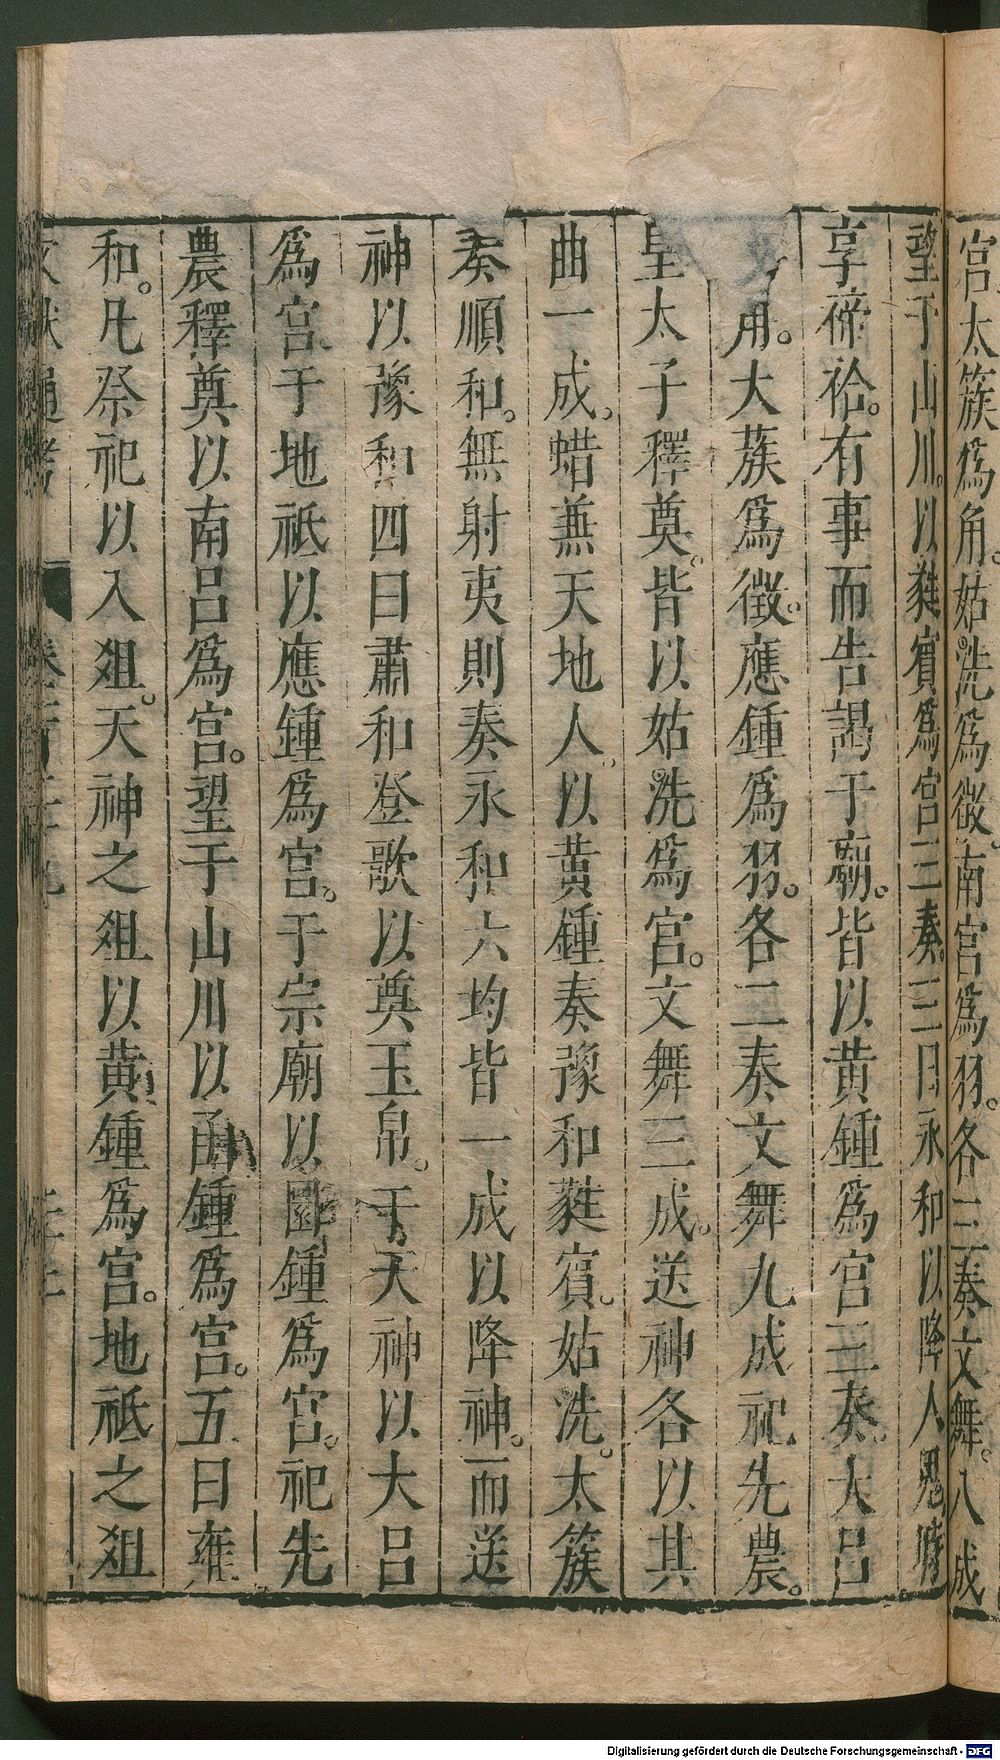 宮太簇爲角。姑洗爲徵。南宮爲羽。各三奏文舞。八成
望于山川。以蕤賓爲宮三奏。三曰永和以降人鬼。時
享禘祫。有事而告謁于廟。皆以黃鍾爲宮三奏。大呂
用。大蔟爲徵。應鍾爲羽。各二奏文舞九成祀先農。
皇太子釋奠。皆以姑洗爲宮。文舞三成。送神各以其
曲一成。蜡兼天地人。以黃鍾奏豫和蕤賓。姑洗。太簇
奏順和。無射夷則奏永和六均皆一成以降神。而送
神以豫和四曰肅和登歌以奠玉帛。于天神以大呂
爲宮。于地祇以應鍾爲宮。于宗廟以圜鍾爲宮。祀先
農釋奠以南呂爲宮。望于山川以函鍾爲宮。五曰雍
和。凡祭祀以入俎。天神之俎以黃鍾爲宮。地祇之俎
文獻通考
Digitalisierung gefördert durch die Deutsche Forschungsgemeinschaft - DFG